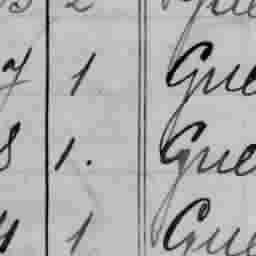 7 1 Gue
8 1. Gue
4 1 Gue